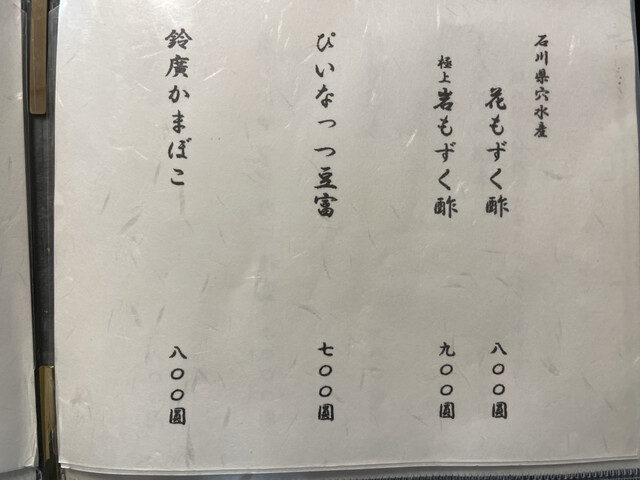 石川県穴水産
花もずく酢 八〇〇圓
極上 岩もずく酢 九〇〇圓
ぴいなっつ豆富 七〇〇圓
鈴廣かまぼこ 八〇〇圓